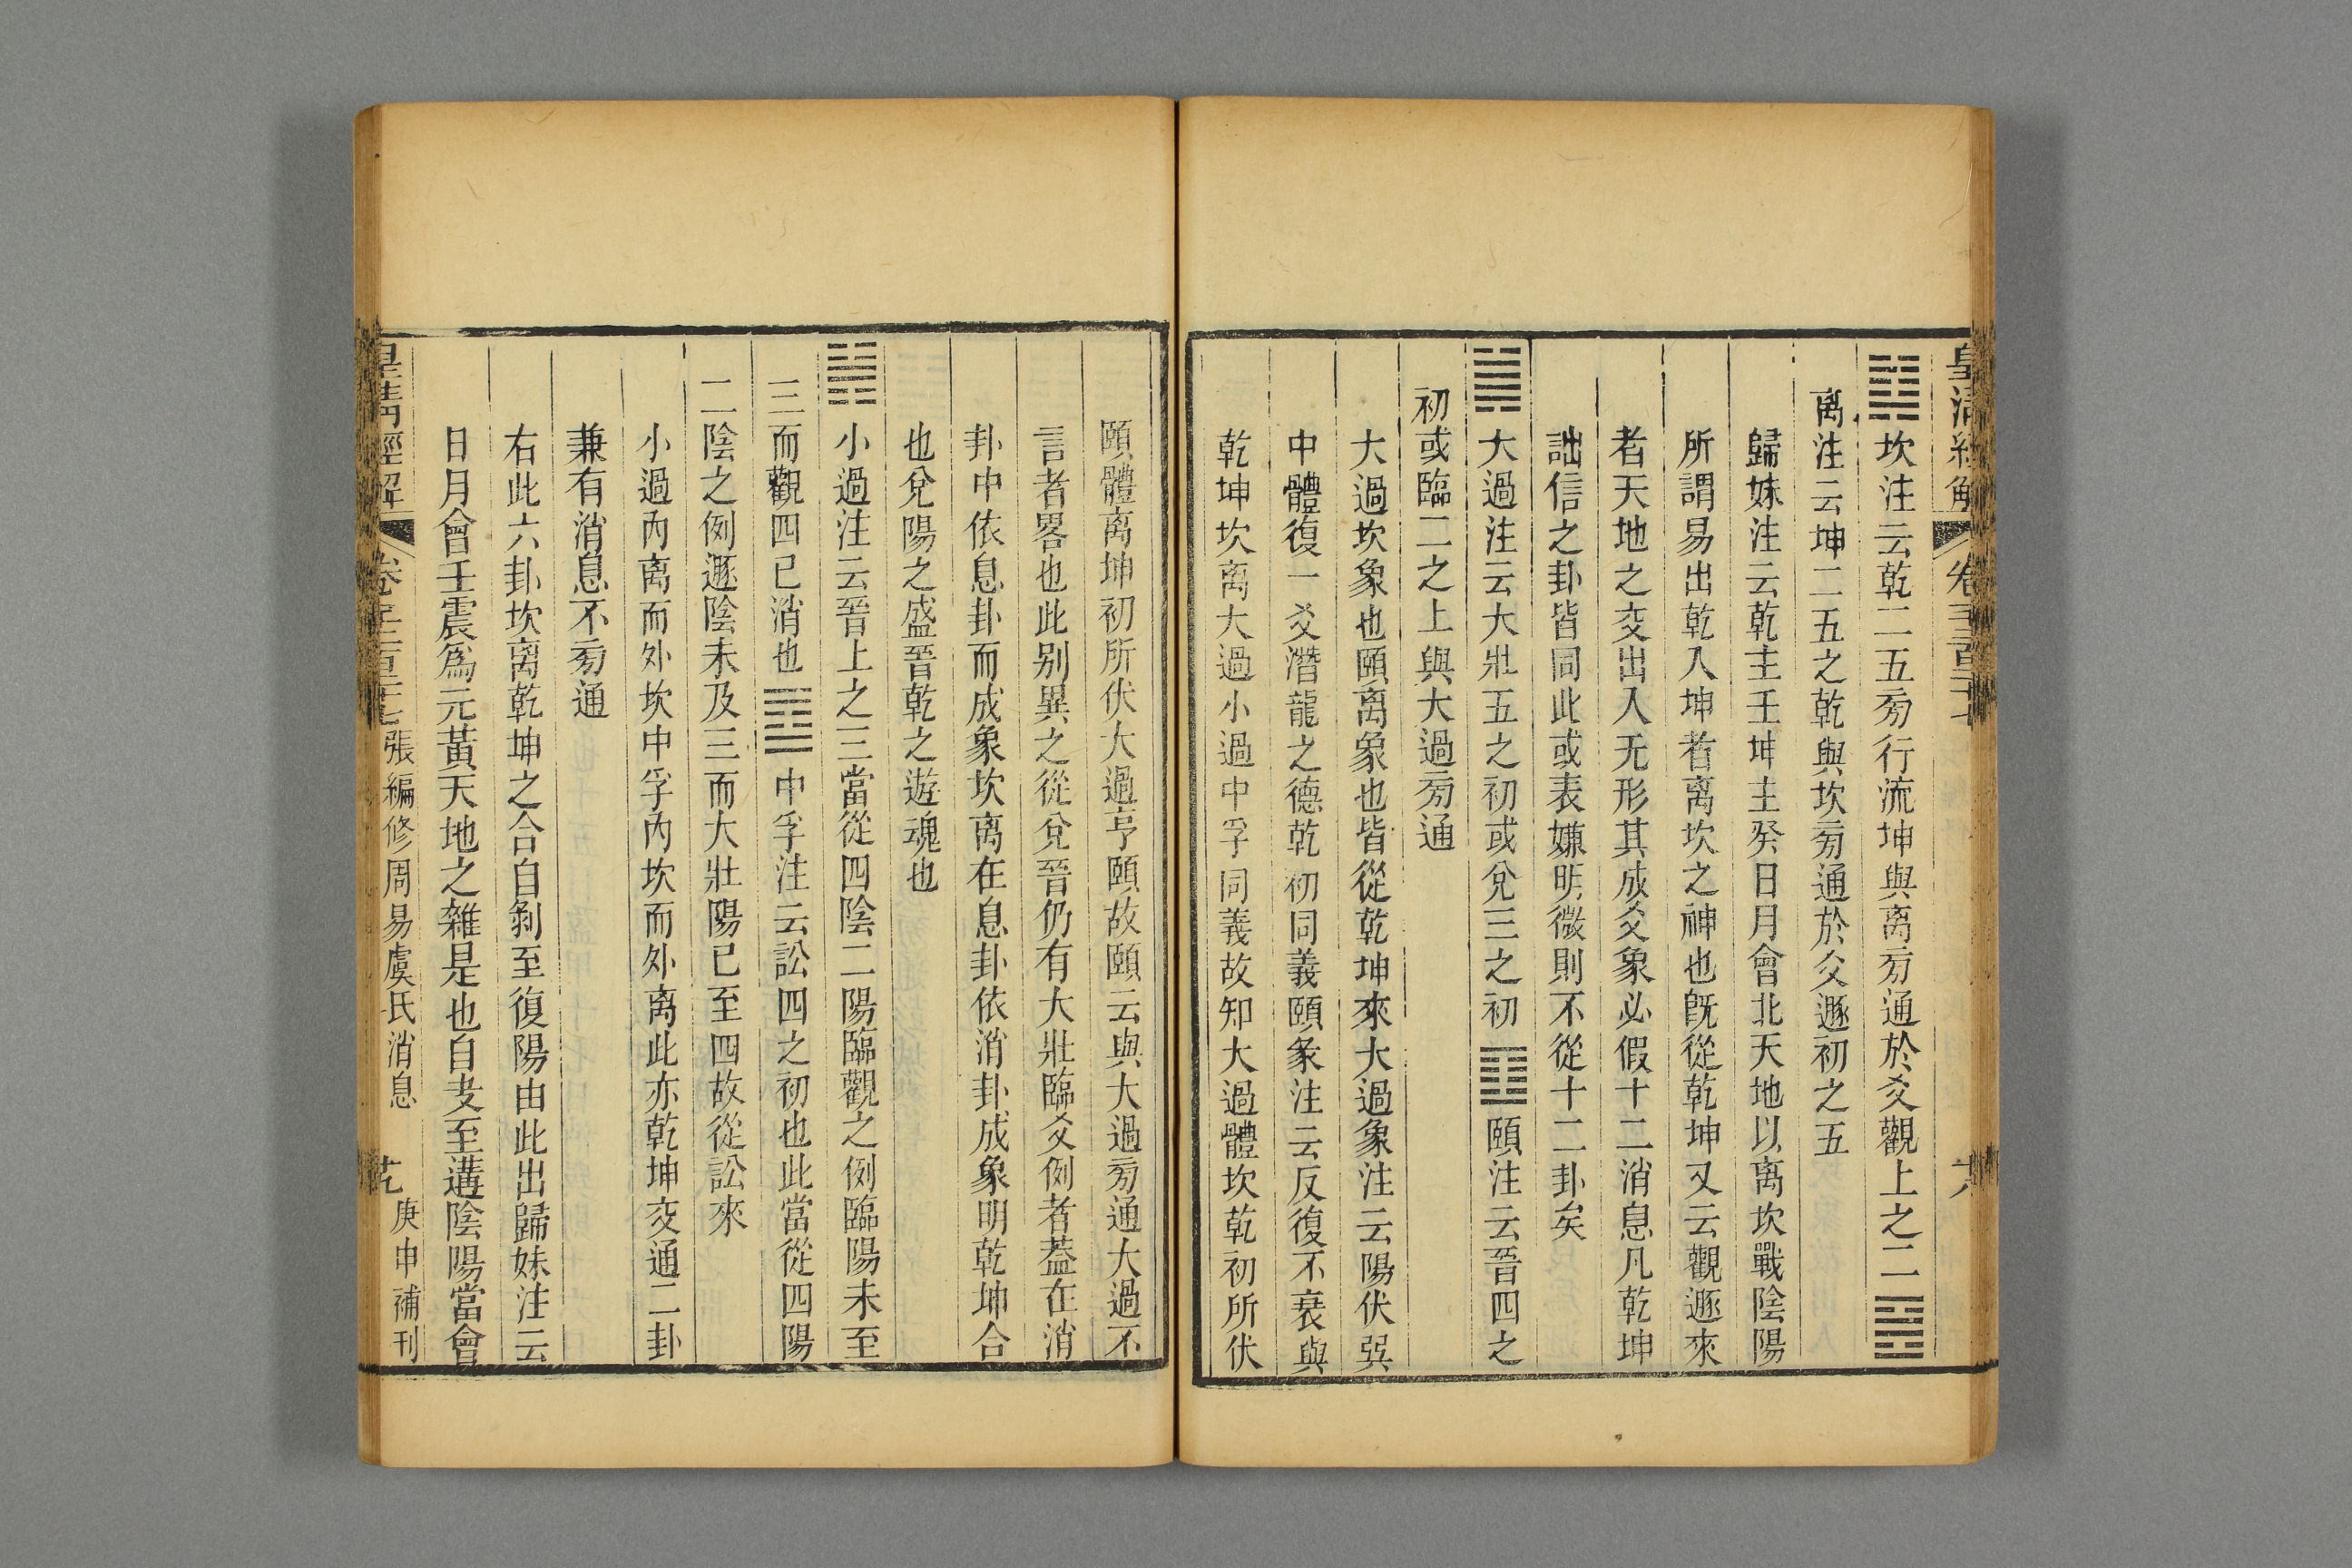 皇清經解 卷
䷜坎注云乾二五旁行流坤與离旁通於爻觀上之二䷝
离注云坤二五之乾與坎旁通於爻遯初之五
歸妹注云乾主壬坤主癸日月會北天地以离坎戰陰陽
所謂易出乾入坤者离坎之神也旣從乾坤又云觀遯來
者天地之交出入无形其成爻象必假十二消息凡乾坤
詘信之卦皆同此或表嫌明微則不從十二卦矣
䷛大過注云大壯五之初或兌三之初䷚頤注云晉四之
初或臨二之上與大過旁通
大過坎象也頤离象也皆從乾坤來大過象注云陽伏巽
中體復一爻潛龍之德乾初同義頤彖注云反復不衰與
乾坤坎离大過小過中孚同義故知大過體坎乾初所伏
頤體离坤初所伏大過亨頤故頤云與大過旁通大過不
言者畧也此别異之從兌晉仍有大壯臨爻例者蓋在消
卦中依息卦而成象坎离在息卦依消卦成象明乾坤合
也兌陽之盛晉乾之遊魂也
䷽小過注云晉上之三當從四陰二陽臨觀之例臨陽未至
三而觀四已消也䷼中孚注云訟四之初也此當從四陽
二陰之例遯陰未及三而大壯陽已至四故從訟來
小過內离而外坎中孚內坎而外离此亦乾坤交通二卦
兼有消息不旁通
右此六卦坎离乾坤之合自剝至復陽由此出歸妹注云
日月會壬震爲元黃天地之雜是也自夬至遘陰陽當會
皇清經解 卷 張編修周易虞氏消息 庚申補刊